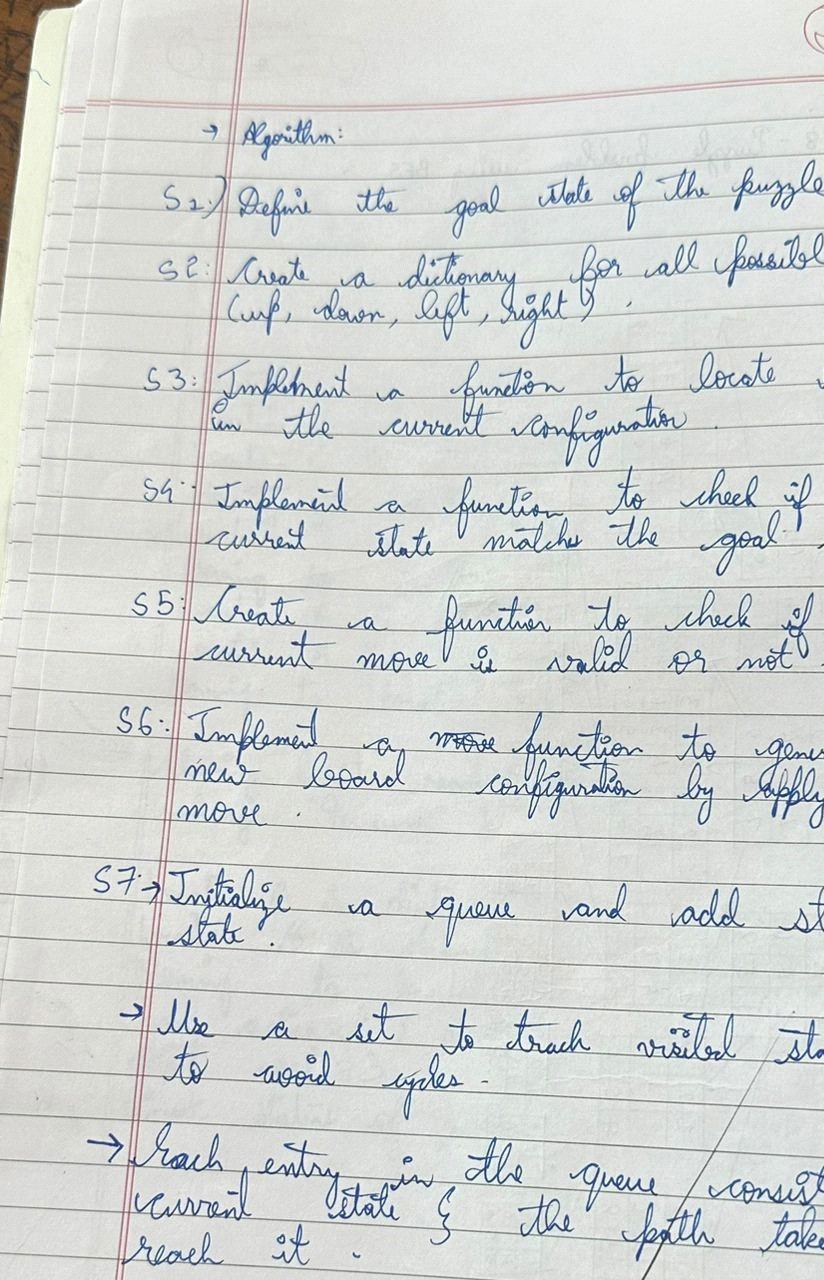 → Algorithm:
S1:) Define the goal state of the puzzle
S2: Create a dictionary for all possibl
(up, down, left, right) .
S3: Implement a function to locate
in the current configuration .
S4: Implement a function to check if
current state matches the goal .
S5: Create a function to check if
current move is valid or not .
S6: Implement a function to gene
new board configuration by apply
move .
S7:→ Initialize a queue and add st
state .
→ Use a set to track visited sta
to avoid cycles .
→ Each entry in the queue consist
current state & the path take
reach it .